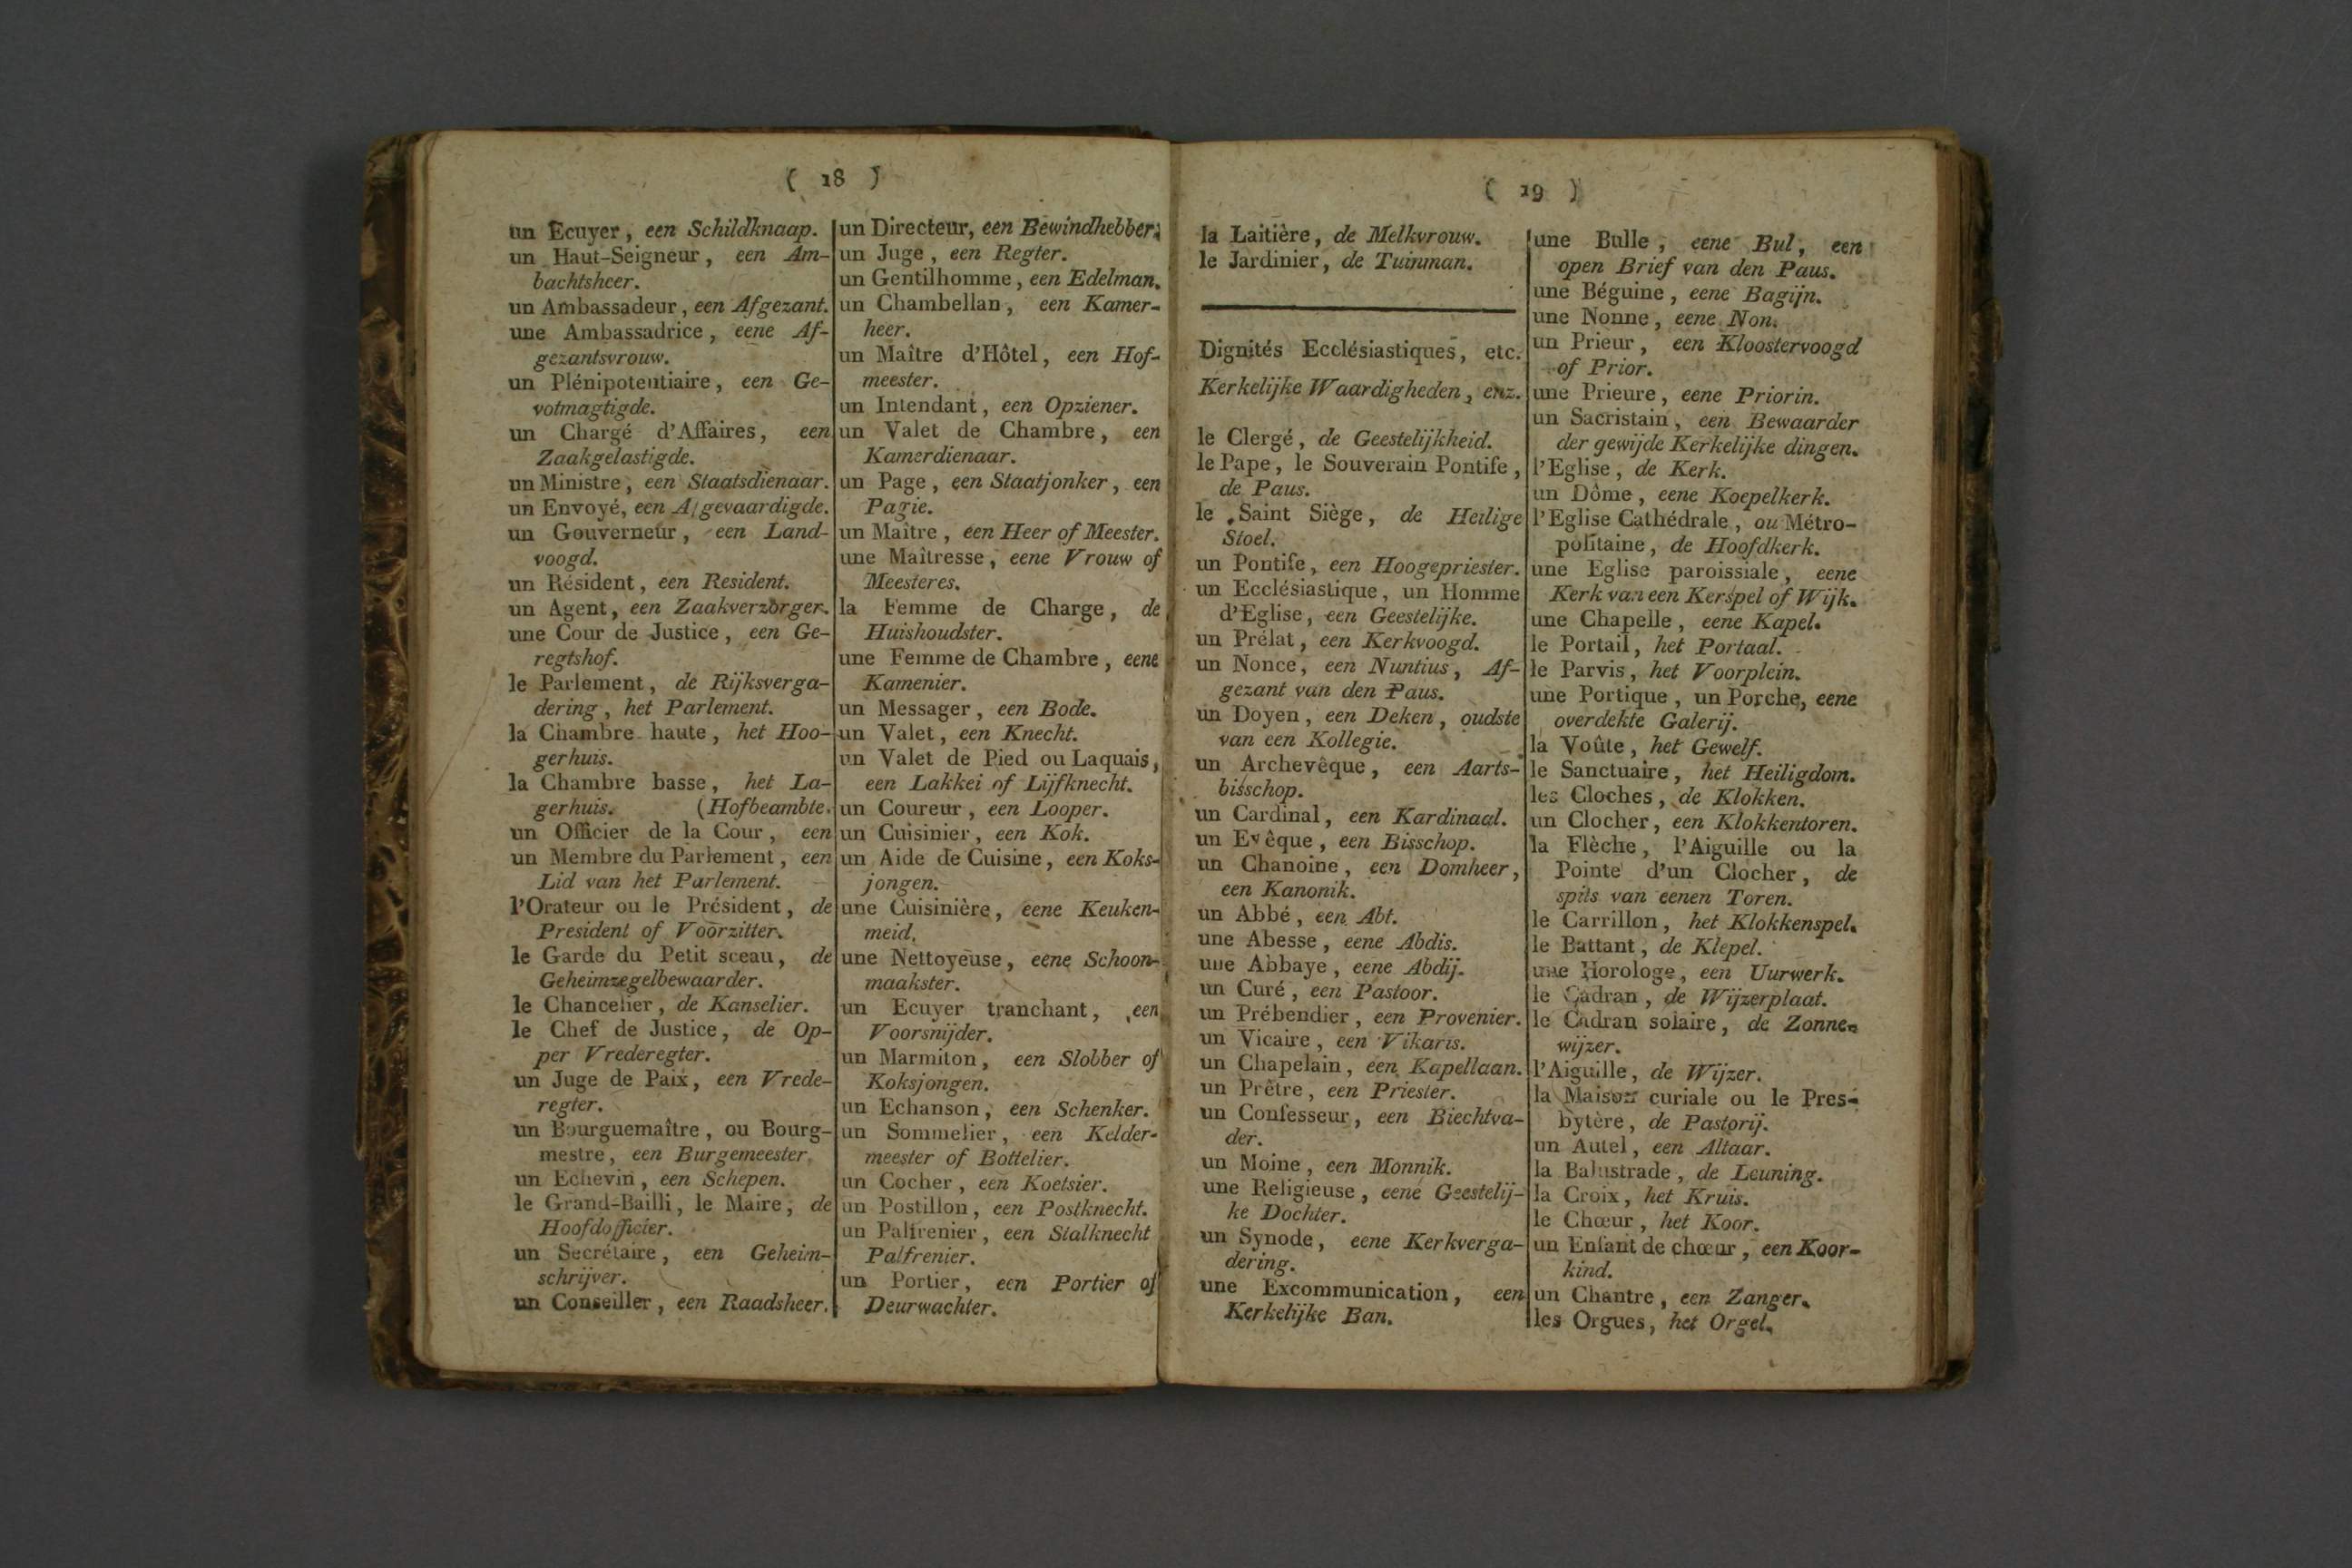 ( 18 )
un Ecuyer, een Schildknaap.
un Haut-Seigneur, een Am-
bachtsheer.
un Ambassadeur, een Afgezant.
une Ambassadrice, eene Af-
gezantsvrouw.
un Plénipotentiaire, een Ge-
votmagtigde.
un Chargé d'Affaires, een
Zaakgelastigde.
un Ministre, een Staatsdienaar.
un Envoyé, een Afgevaardigde.
un Gouverneur, een Land-
voogd.
un Résident, een Resident.
un Agent, een Zaakverzorger.
une Cour de Justice, een Ge-
regtshof.
le Parlement, de Rijksverga-
dering, het Parlement.
la Chambre haute, het Hoo-
gerhuis.
la Chambre basse, het La-
gerhuis. (Hofbeambte.
un Officier de la Cour, een
un Membre du Parlement, een
Lid van het Parlement.
l'Orateur ou le Président, de
President of Voorzitter.
le Garde du Petit sceau, de
Geheimzegelbewaarder.
le Chancelier, de Kanselier.
le Chef de Justice, de Op-
per Vrederegter.
un Juge de Paix, een Vrede-
regter.
un Bourguemaître, ou Bourg-
mestre, een Burgemeester.
un Echevin, een Schepen.
le Grand-Bailli, le Maire, de
Hoofdofficier.
un Secrétaire, een Geheim-
schrijver.
un Conseiller, een Raadsheer.
un Directeur, een Bewindhebber.
un Juge, een Regter.
un Gentilhomme, een Edelman.
un Chambellan, een Kamer-
heer.
un Maître d'Hôtel, een Hof-
meester.
un Intendant, een Opziener.
un Valet de Chambre, een
Kamerdienaar.
un Page, een Staatjonker, een
Pagie.
un Maître, een Heer of Meester.
une Maîtresse, eene Vrouw of
Meesteres.
la Femme de Charge, de
Huishoudster.
une Femme de Chambre, eene
Kamenier.
un Messager, een Bode.
un Valet, een Knecht.
un Valet de Pied ou Laquais,
een Lakkei of Lijfknecht.
un Coureur, een Looper.
un Cuisinier, een Kok.
un Aide de Cuisine, een Koks-
jongen.
une Cuisinière, eene Keuken-
meid.
une Nettoyeuse, eene Schoon-
maakster.
un Ecuyer tranchant, een
Voorsnijder.
un Marmiton, een Slobber of
Koksjongen.
un Echanson, een Schenker.
un Sommelier, een Kelder-
meester of Bottelier.
un Cocher, een Koetsier.
un Postillon, een Postknecht.
un Palfrenier, een Stalknecht
Palfrenier.
un Portier, een Portier of
Deurwachter.
( 19 )
la Laitière, de Melkvrouw.
le Jardinier, de Tuinman.
Dignités Ecclésiastiques, etc.
Kerkelijke Waardigheden, enz.
le Clergé, de Geestelijkheid.
le Pape, le Souverain Pontife,
de Paus.
le Saint Siège, de Heilige
Stoel.
un Pontife, een Hoogepriester.
un Ecclésiastique, un Homme
d'Eglise, een Geestelijke.
un Prélat, een Kerkvoogd.
un Nonce, een Nuntius, Af-
gezant van den Paus.
un Doyen, een Deken, oudste
van een Kollegie.
un Archevêque, een Aarts-
bisschop.
un Cardinal, een Kardinaal.
un Evêque, een Bisschop.
un Chanoine, een Domheer,
een Kanonik.
un Abbé, een Abt.
une Abesse, eene Abdis.
une Abbaye, eene Abdij.
un Curé, een Pastoor.
un Prébendier, een Provenier.
un Vicaire, een Vikaris.
un Chapelain, een Kapellaan.
un Prêtre, een Priester.
un Confesseur, een Biechtva-
der.
un Moine, een Monnik.
une Religieuse, eene Geestelij-
ke Dochter.
un Synode, eene Kerkverga-
dering.
une Excommunication, een
Kerkelijke Ban.
une Bulle, eene Bul, een
open Brief van den Paus.
une Béguine, eene Bagijn.
une Nonne, eene Non.
un Prieur, een Kloostervoogd
of Prior.
une Prieure, eene Priorin.
un Sacristain, een Bewaarder
der gewijde Kerkelijke dingen.
l'Eglise, de Kerk.
un Dôme, eene Koepelkerk.
l'Eglise Cathédrale, ou Métro-
politaine, de Hoofdkerk.
une Eglise paroissiale, eene
Kerk van een Kerspel of Wijk.
une Chapelle, eene Kapel.
le Portail, het Portaal.
le Parvis, het Voorplein.
une Portique, un Porche, eene
overdekte Galerij.
la Voûte, het Gewelf.
le Sanctuaire, het Heiligdom.
les Cloches, de Klokken.
un Clocher, een Klokkentoren.
la Flèche, l'Aiguille ou la
Pointe d'un Clocher, de
spits van eenen Toren.
le Carrillon, het Klokkenspel.
le Battant, de Klepel.
une Horologe, een Uurwerk.
le Cadran, de Wijzerplaat.
le Cadran solaire, de Zonne-
wijzer.
l'Aiguille, de Wijzer.
la Maison curiale ou le Pres-
bytère, de Pastorij.
un Autel, een Altaar.
la Balustrade, de Leuning.
la Croix, het Kruis.
le Chœur, het Koor.
un Enfant de chœur, een Koor-
kind.
un Chantre, een Zanger.
les Orgues, het Orgel.